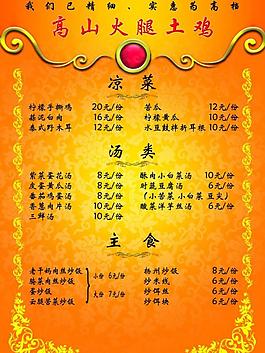 我们已精细、实惠为高档
高山火腿土鸡
凉菜
柠檬手撕鸡 20元/份 苦瓜 12元/份
蒜泥白肉 16元/份 柠檬黄瓜 10元/份
泰式野木耳 12元/份 水豆鼓拌折耳根 10元/份
汤类
紫菜蛋花汤 8元/份 酥肉小白菜汤 10元/份
皮蛋黄瓜汤 8元/份 时蔬豆腐汤 6元/份
番茄鸡蛋汤 8元/份 (小苦菜 小白菜 豆尖)
香葱肉片汤 10元/份 酸菜洋芋丝汤 6元/份
三鲜汤 10元/份
主食
老干妈肉丝炒饭 扬州炒饭 8元/份
腌菜肉丝炒饭 小份 6元/份 炒米线 6元/份
蛋炒饭 大份 7元/份 炒饵丝 6元/份
云腿苦菜炒饭 炒饵块 6元/份